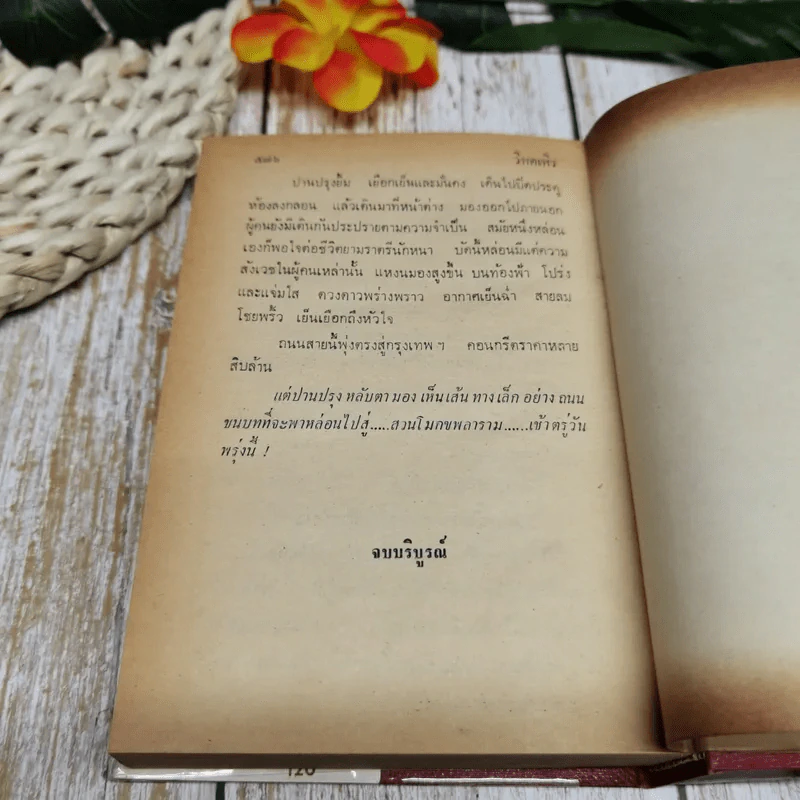 ๕๗๖ วิกตเพิง
ปานปรุงยิ้ม เยือกเย็นและมั่นคง เดินไปปิดประตู
ห้องลงกลอน แล้วเดินมาที่หน้าต่าง มองออกไปภายนอก
ผู้คนยังมีเดินกันประปรายตามความจำเป็น สมัยหนึ่งหล่อน
เองก็พอใจต่อชีวิตยามราตรีนักหนา บัดนี้หล่อนมีแต่ความ
สังเวชในผู้คนเหล่านั้น แหงนมองสูงขึ้น บนท้องฟ้า โปร่ง
และแจ่มใส ดวงดาวพร่างพราว อากาศเย็นฉ่ำ สายลม
โชยพริ้ว เย็นเยือกถึงหัวใจ
ถนนสายนี้พุ่งตรงสู่กรุงเทพ ฯ คอนกรีตราคาหลาย
สิบล้าน
แต่ปานปรุง หลับตา มอง เห็นเส้น ทางเล็ก อย่าง ถนน
ชนบทที่จะพาหล่อนไปสู่.....สวนโมกขพลาราม......เช้าตรู่วัน
พรุ่งนี้ !
จบบริบูรณ์
120